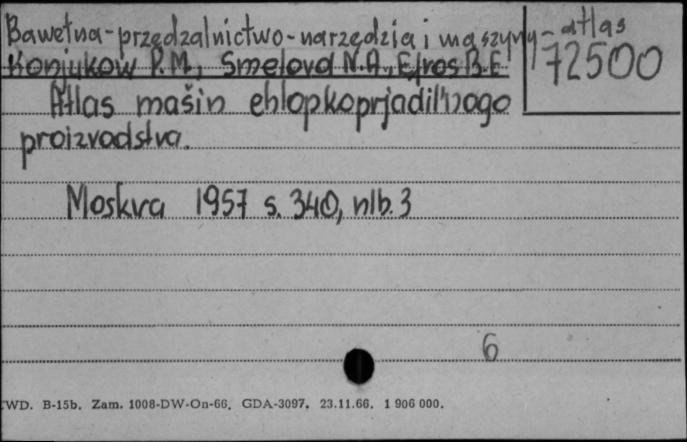 Bawełna-przędzalnictwo-narzędzia i maszyny-atlas
Konjukow P.M., Smelova N.A., Efros B.E
72500
Atlas mašin chlopkoprjadil'nogo
proizvodstva.
Moskva 1957 s. 340, nlb. 3
6
WD. B-15b. Zam. 1008-DW-On-66. GDA-3097. 23.11.66. 1 906 000.